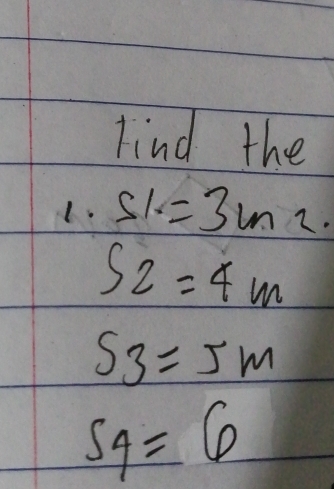 Find the
1. S1 = 3m 2.
S2 = 4 m
S3 = 5 m
S4 = 6